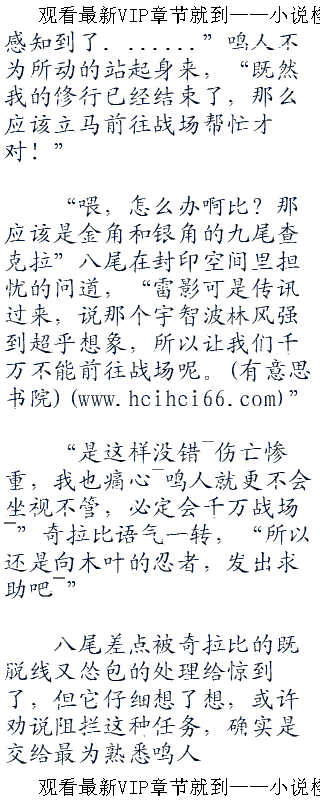 观看最新VIP章节就到——小说检
感知到了........”鸣人不
为所动的站起身来，“既然
我的修行已经结束了，那么
应该立马前往战场帮忙才
对！”
“喂，怎么办啊比？那
应该是金角和银角的九尾查
克拉”八尾在封印空间里担
忧的问道，“雷影可是传讯
过来，说那个宇智波林风强
到超乎想象，所以让我们千
万不能前往战场呢。(有意思
书院)(www.hcihci66.com)”
“是这样没错‾伤亡惨
重，我也痛心‾鸣人就更不会
坐视不管，必定会千万战场
‾”奇拉比语气一转，“所以
还是向木叶的忍者，发出求
助吧‾”
八尾差点被奇拉比的既
脱线又怂包的处理给惊到
了，但它仔细想了想，或许
劝说阻拦这种任务，确实是
交给最为熟悉鸣人
观看最新VIP章节就到——小说检